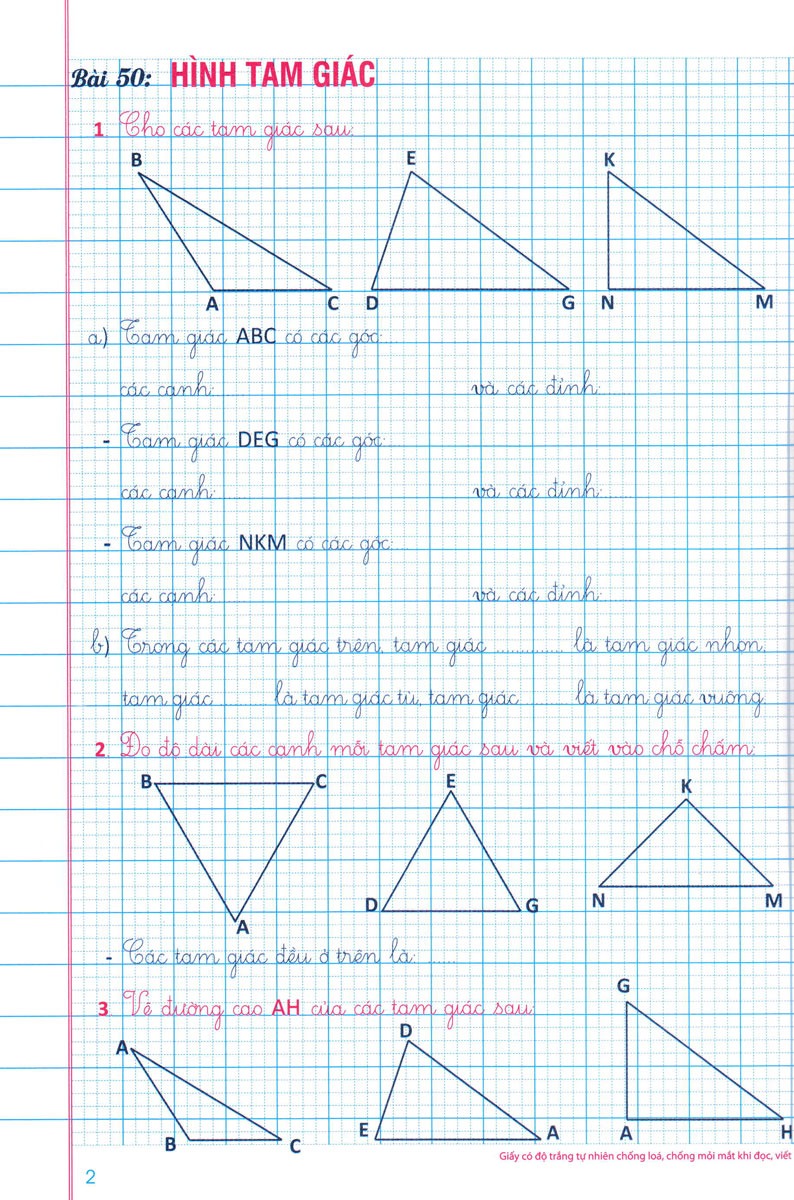 Bài 50: HÌNH TAM GIÁC
1 Cho các tam giác sau:
B E K
A C D G N M
a) Tam giác ABC có các góc:....
các cạnh:..... và các đỉnh:.....
- Tam giác DEG có các góc:
các cạnh:..... và các đỉnh:.....
- Tam giác NKM có các góc:...
các cạnh:.... và các đỉnh:....
b) Trong các tam giác trên, tam giác .............. là tam giác nhọn,
tam giác ......... là tam giác tù, tam giác ....... là tam giác vuông.
2 Đo độ dài các cạnh mỗi tam giác sau và viết vào chỗ chấm:
B C E K
D G N M
A
- Các tam giác đều ở trên là: ......
3 Vẽ đường cao AH của các tam giác sau:
G
A D
B C E A A H
Giấy có độ trắng tự nhiên chống loá, chống mỏi mắt khi đọc, viết
2